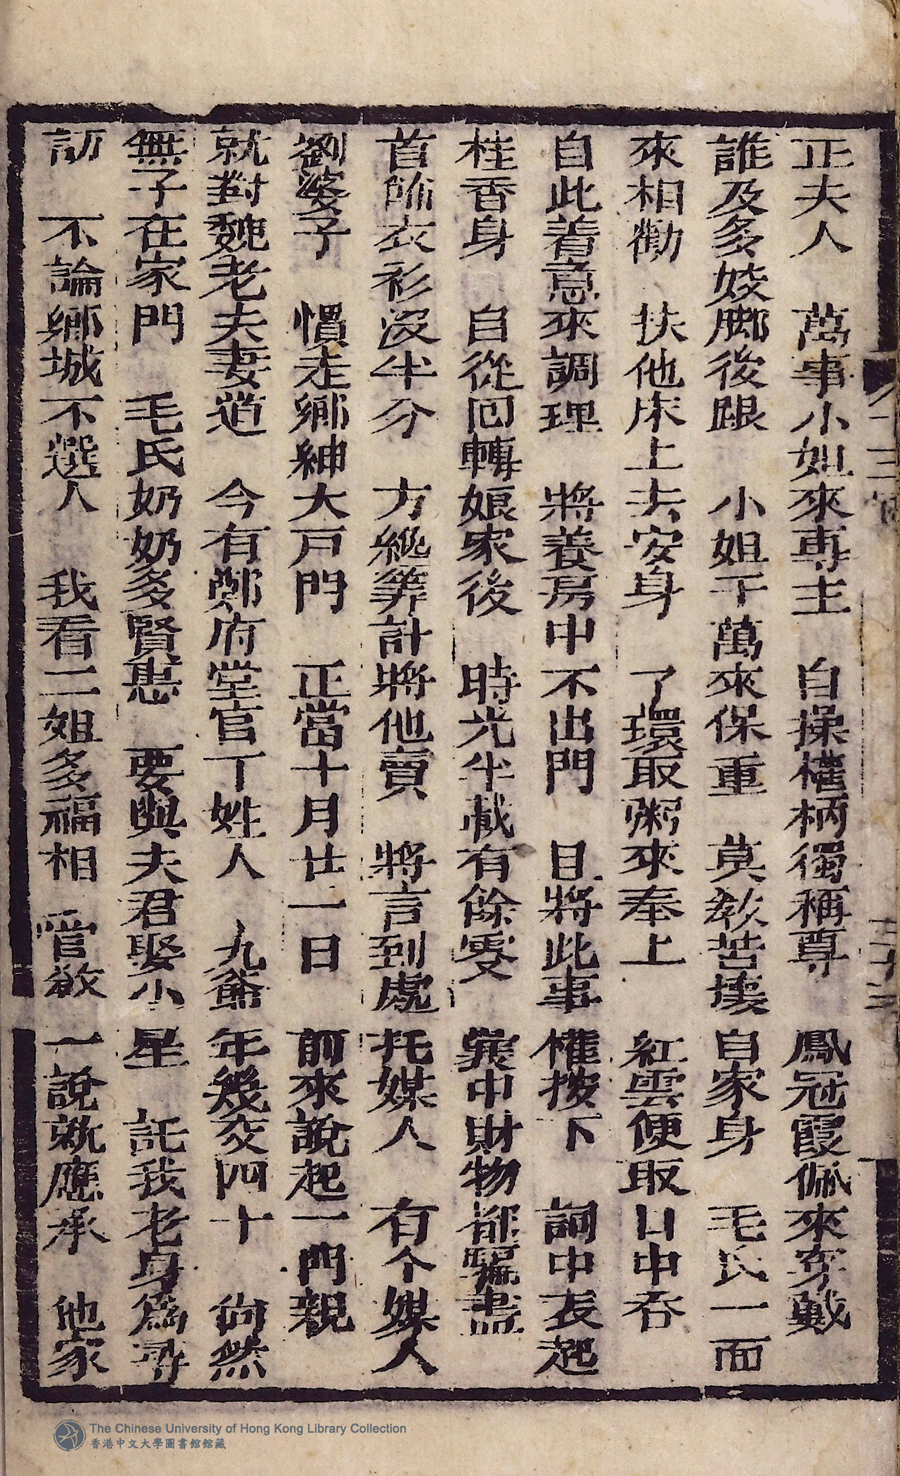 正夫人 萬事小姐來專主 自操權柄獨稱尊 鳳冠霞佩來穿戴
誰及多姣脚後跟 小姐千萬來保重 莫教苦壞自家身 毛氏一面
來相勸 扶他床上去安身 了環取粥來奉上 紅雲便取口中吞
自此着意來調理 將養房中不出門 且將此事權按下 詞中表起
桂香身 自從囘轉娘家後 時光半載有餘零 中財物都騙盡
首飾衣衫沒半分 方纔筭計將他賣 將言到處托媒人 有个媒人
劉婆子 慣走鄉紳大戸門 正當十月廿一日 前來說起一門親
就對魏老夫妻道 今有鄭府堂官丁姓人 九爺年幾交四十 尙然
無子在家門 毛氏奶奶多賢惠 要與夫君娶小星 託我老身爲尋
訪 不論鄉城不選人 我看二姐多福相 管敎一說就應承 他家
十三
The Chinese University of Hong Kong Library Collection
香港中文大學圖書館館藏